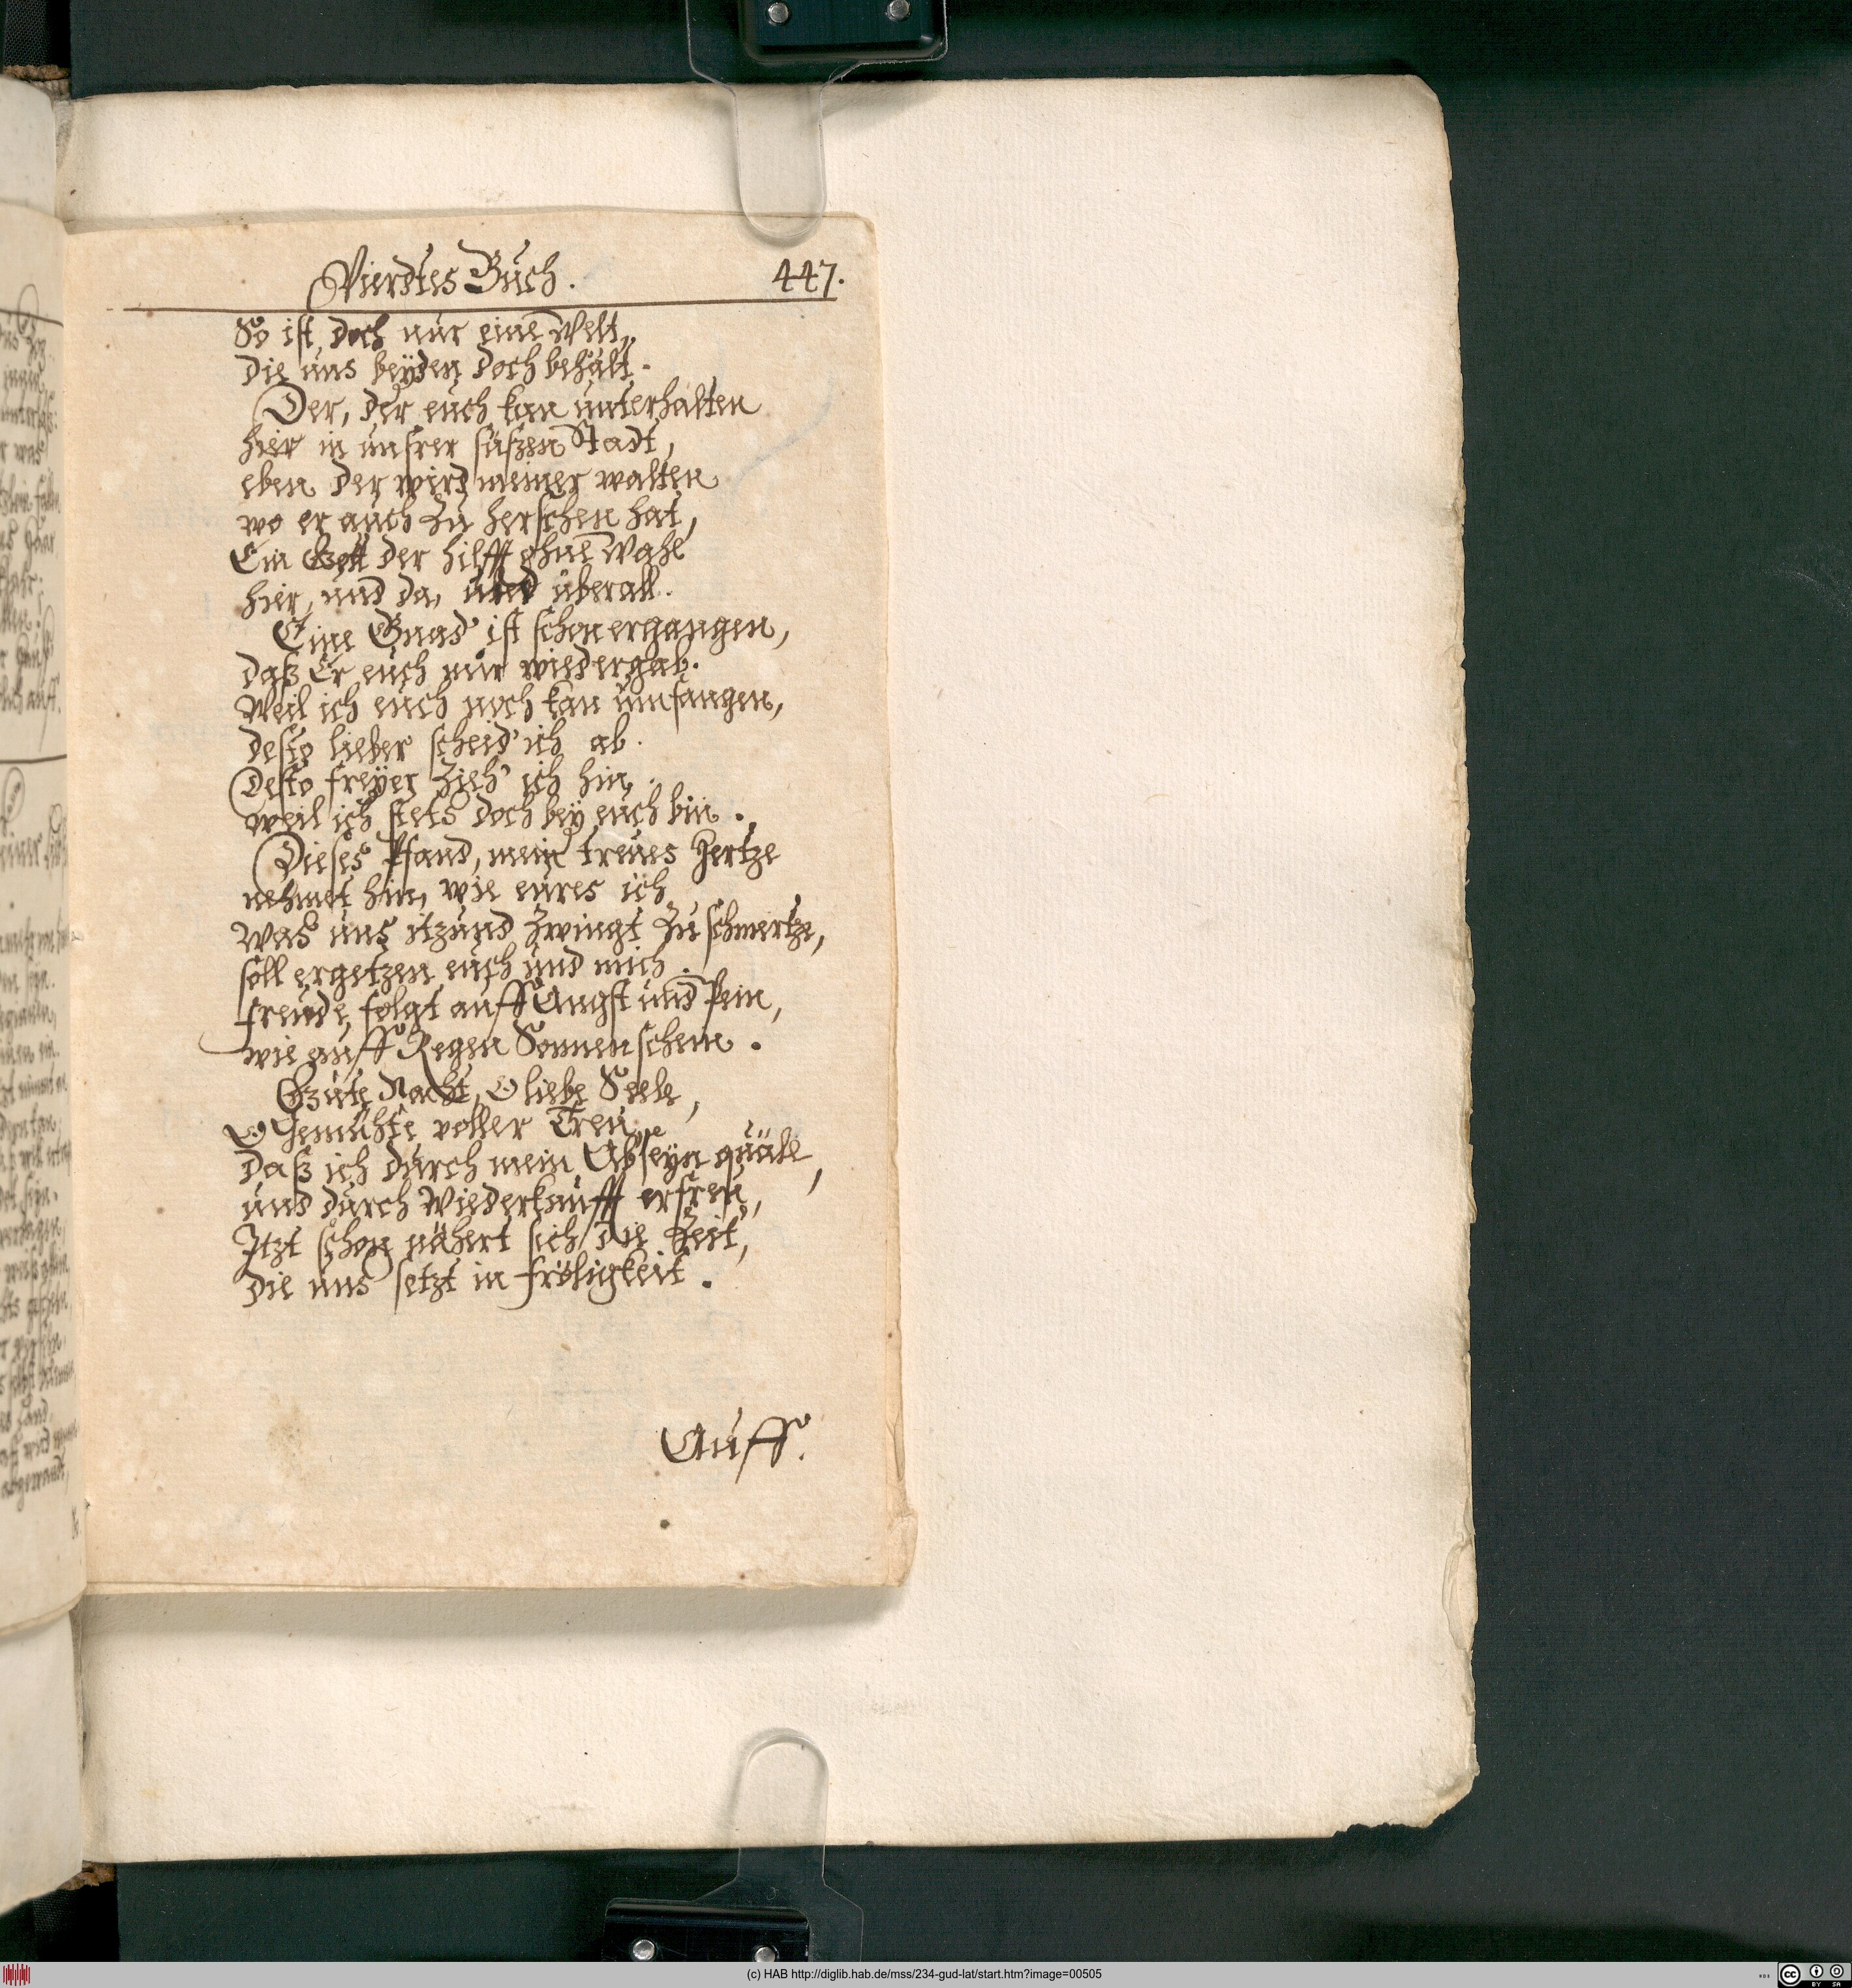 Vierdtes Buch. 447.
So ist doch nur eine Welt,
die uns beyden doch behält.
Der, der euch kan unterhalten
hier in unsrer süßen Stadt,
eben der wird meiner walten
wo er auch zu herschen hat,
Ein Gott der hilfft ohne Wahl
hier, und da, und überall.
Eine Gnad' ist schon ergangen,
daß Er euch mir wiedergab.
Weil ich euch noch kan umfangen,
desto lieber scheid' ich ab.
Desto freyer zieh' ich hin,
weil ich stets doch bey euch bin.
Dieses Pfand, mein treues Hertze
nehmet hin, wie eures ich
Was uns itzund zwingt zu schmertze,
soll ergetzen euch und mich.
freude, folgt auff Angst und Pein,
wie auff Regen Sonnenschein.
Gute Nacht, O liebe Seele,
O Gemühte voller Treu,
Daß ich durch mein Abseyn quäle,
und durch Wiederkunfft erfreu,
Itzt schon nähert sich die Zeit,
die uns setzt in fröligkeit.
Auff.
(c) HAB http://diglib.hab.de/mss/234-gud-lat/start.htm?image=00505
CC BY SA